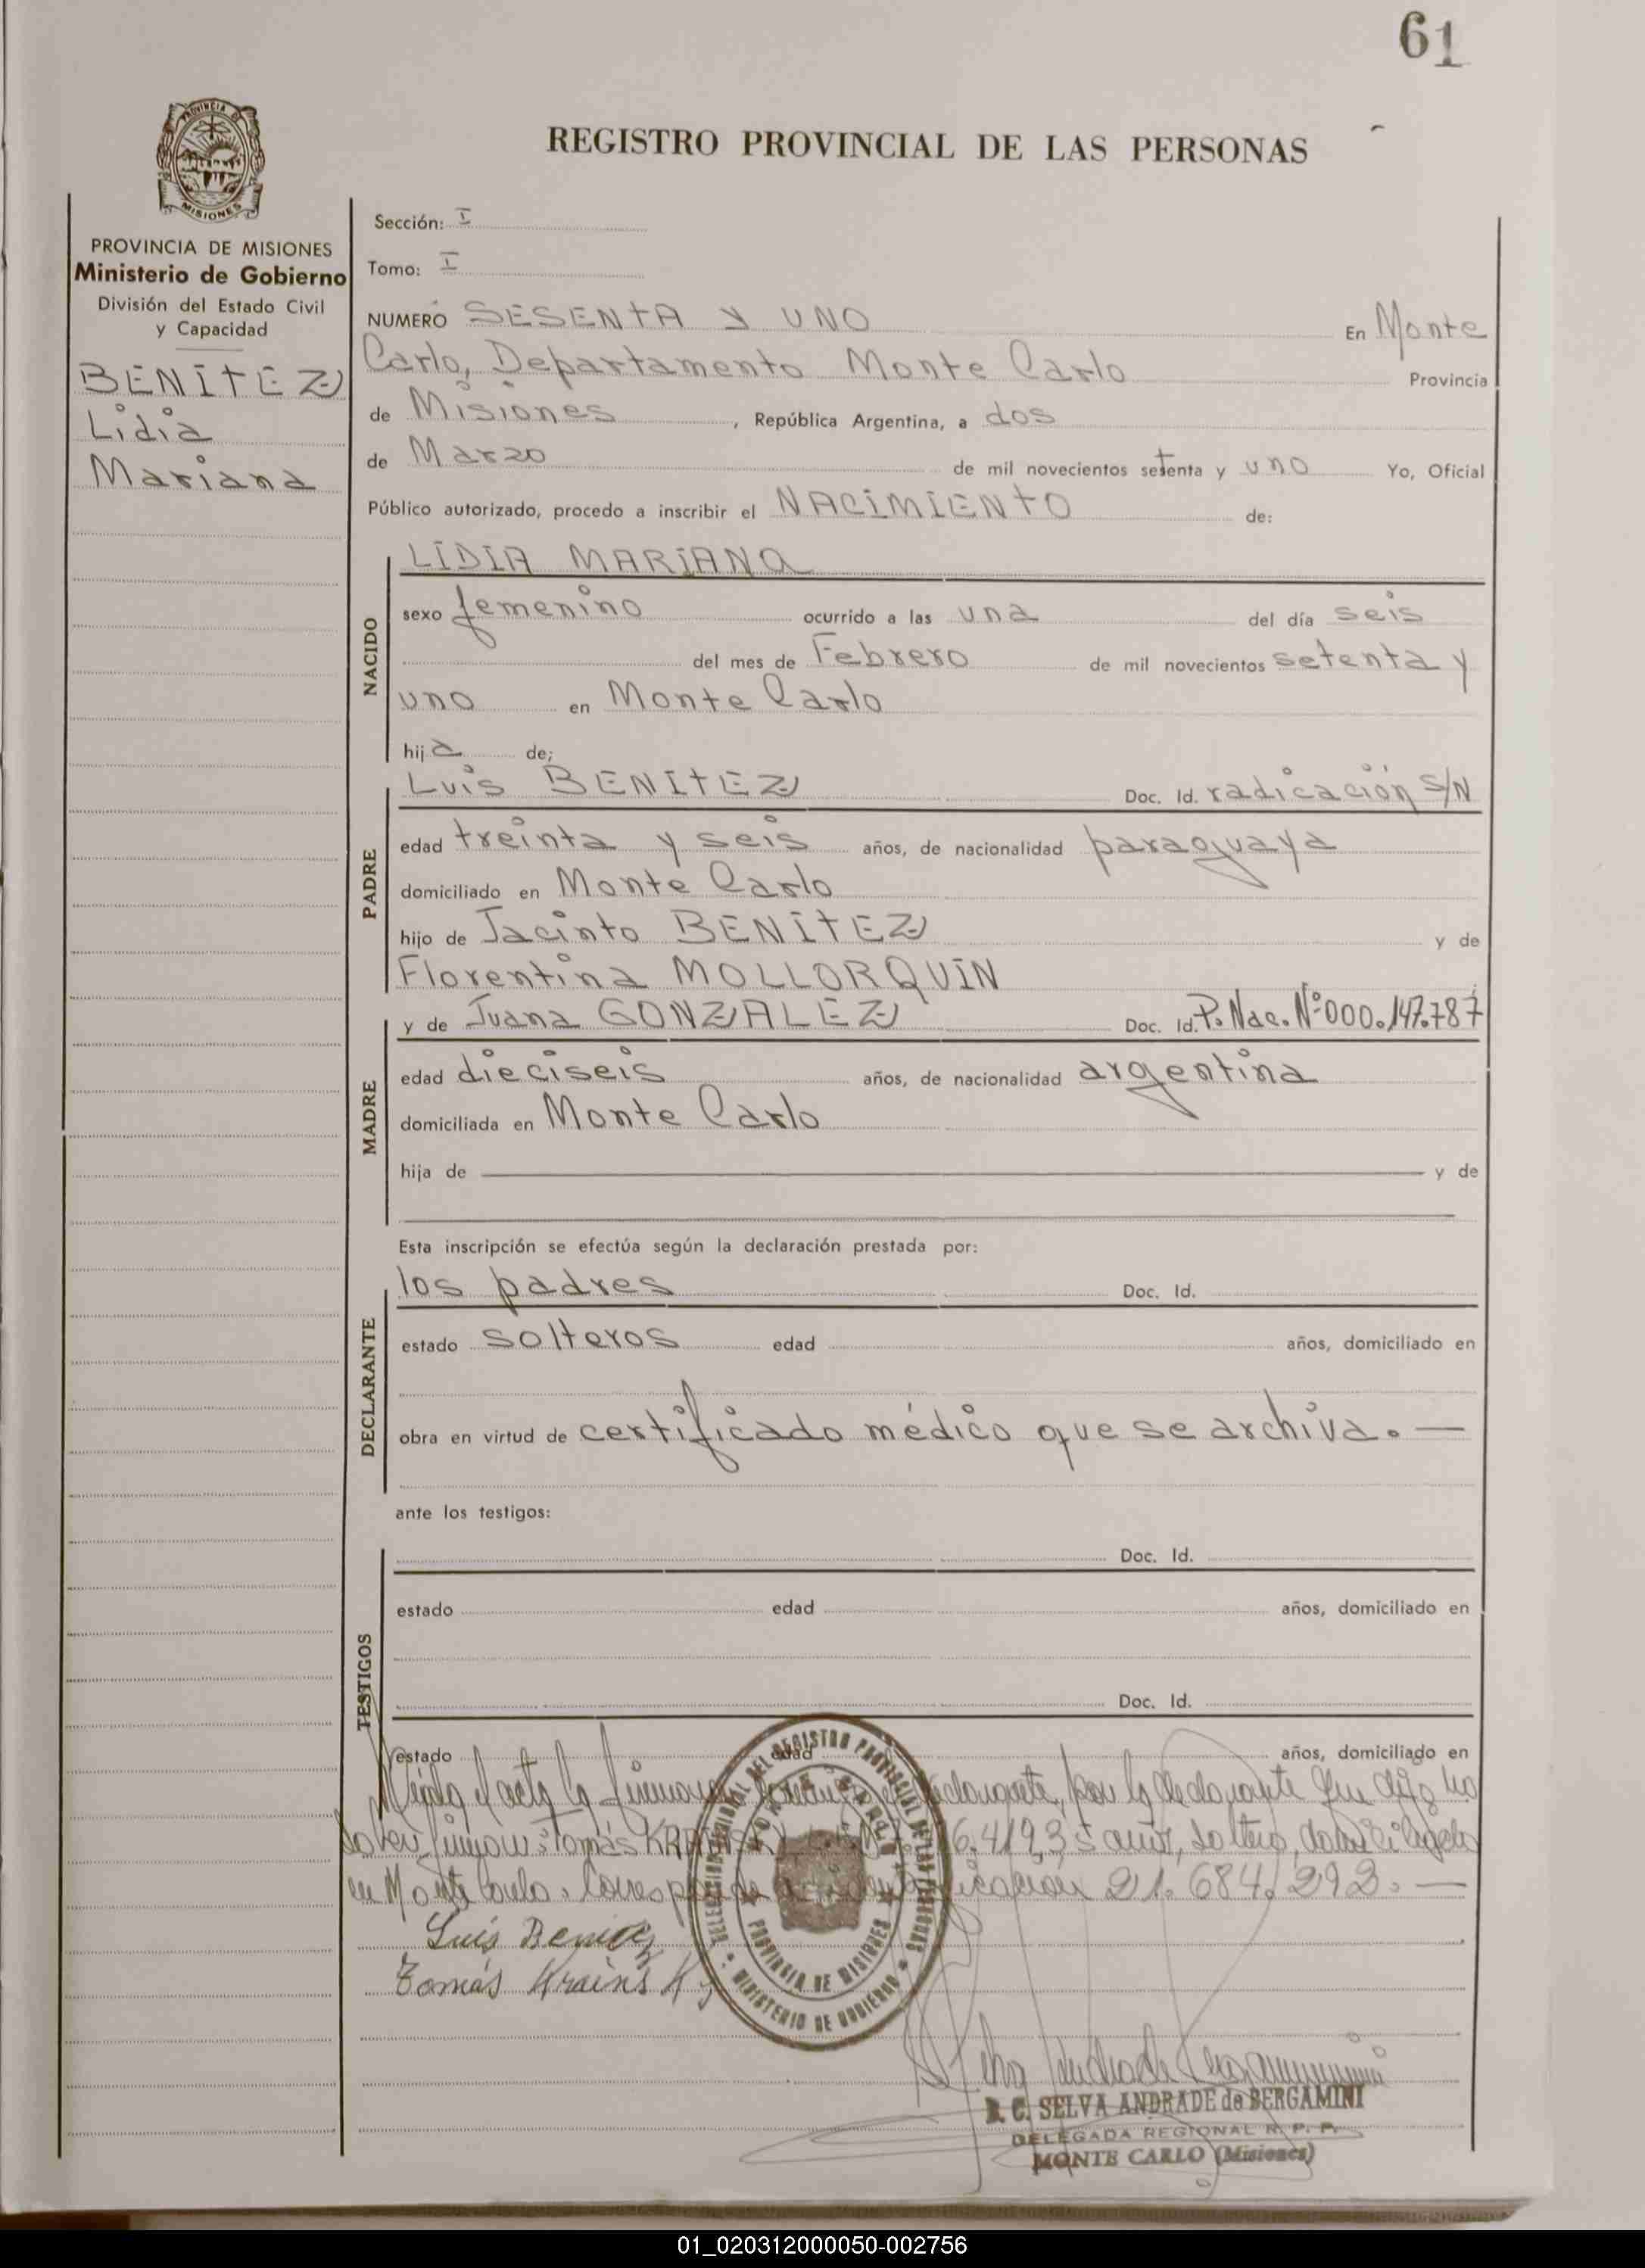 61
REGISTRO PROVINCIAL DE LAS PERSONAS
PROVINCIA DE MISIONES
Ministerio de Gobierno
División del Estado Civil
y Capacidad
BENITEZ
Lidia
Mariana
Sección: I
Tomo: I
NUMERO SESENTA Y UNO En Monte
Carlo, Departamento Monte Carlo Provincia
de Misiones, República Argentina, a dos
de Marzo de mil novecientos setenta y uno Yo, Oficial
Público autorizado, procedo a inscribir el NACIMIENTO de:
NACIDO
LIDIA MARIANA
sexo femenino ocurrido a las una del día seis
del mes de Febrero de mil novecientos setenta y
uno en Monte Carlo
hija de;
PADRE
Luis BENITEZ Doc. Id. radicación S/N
edad treinta y seis años, de nacionalidad paraguaya
domiciliado en Monte Carlo
hijo de Jacinto BENITEZ y de
Florentina MOLLORQUIN
MADRE
y de Juana GONZALEZ Doc. Id. P. Nac. Nº 000.147.787
edad dieciseis años, de nacionalidad argentina
domiciliada en Monte Carlo
hija de y de
Esta inscripción se efectúa según la declaración prestada por:
DECLARANTE
los padres Doc. Id.
estado solteros edad años, domiciliado en
obra en virtud de certificado médico que se archiva. —
ante los testigos:
TESTIGOS
Doc. Id.
estado edad años, domiciliado en
Doc. Id.
estado edad años, domiciliado en
acta declarante, por la declarante que dijo no
saber Tomás años, soltero, domiciliado
en Monte Carlo. 21.684.292. —
Luis Benitez
Tomás Krainski
PROVINCIA DE MISIONES
MINISTERIO DE GOBIERNO
SELVA ANDRADE de BERGAMINI
DELEGADA REGIONAL R. P. P.
MONTE CARLO (Misiones)
01_020312000050-002756